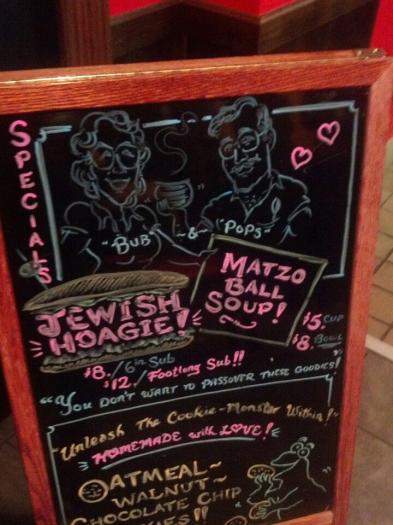 SPECIALS
"BUB" ~&~ "POPS"
MATZO
BALL
SOUP!
$5. CUP
$8. BOWL
JEWISH
HOAGIE!
$8./6in Sub
$12./Footlong Sub!!
"YOU DON'T WANT TO PASSOVER THESE GOODIES!
Unleash The Cookie-Monster Within!~
HOMEMADE with LOVE!
OATMEAL~
WALNUT~
CHOCOLATE CHIP